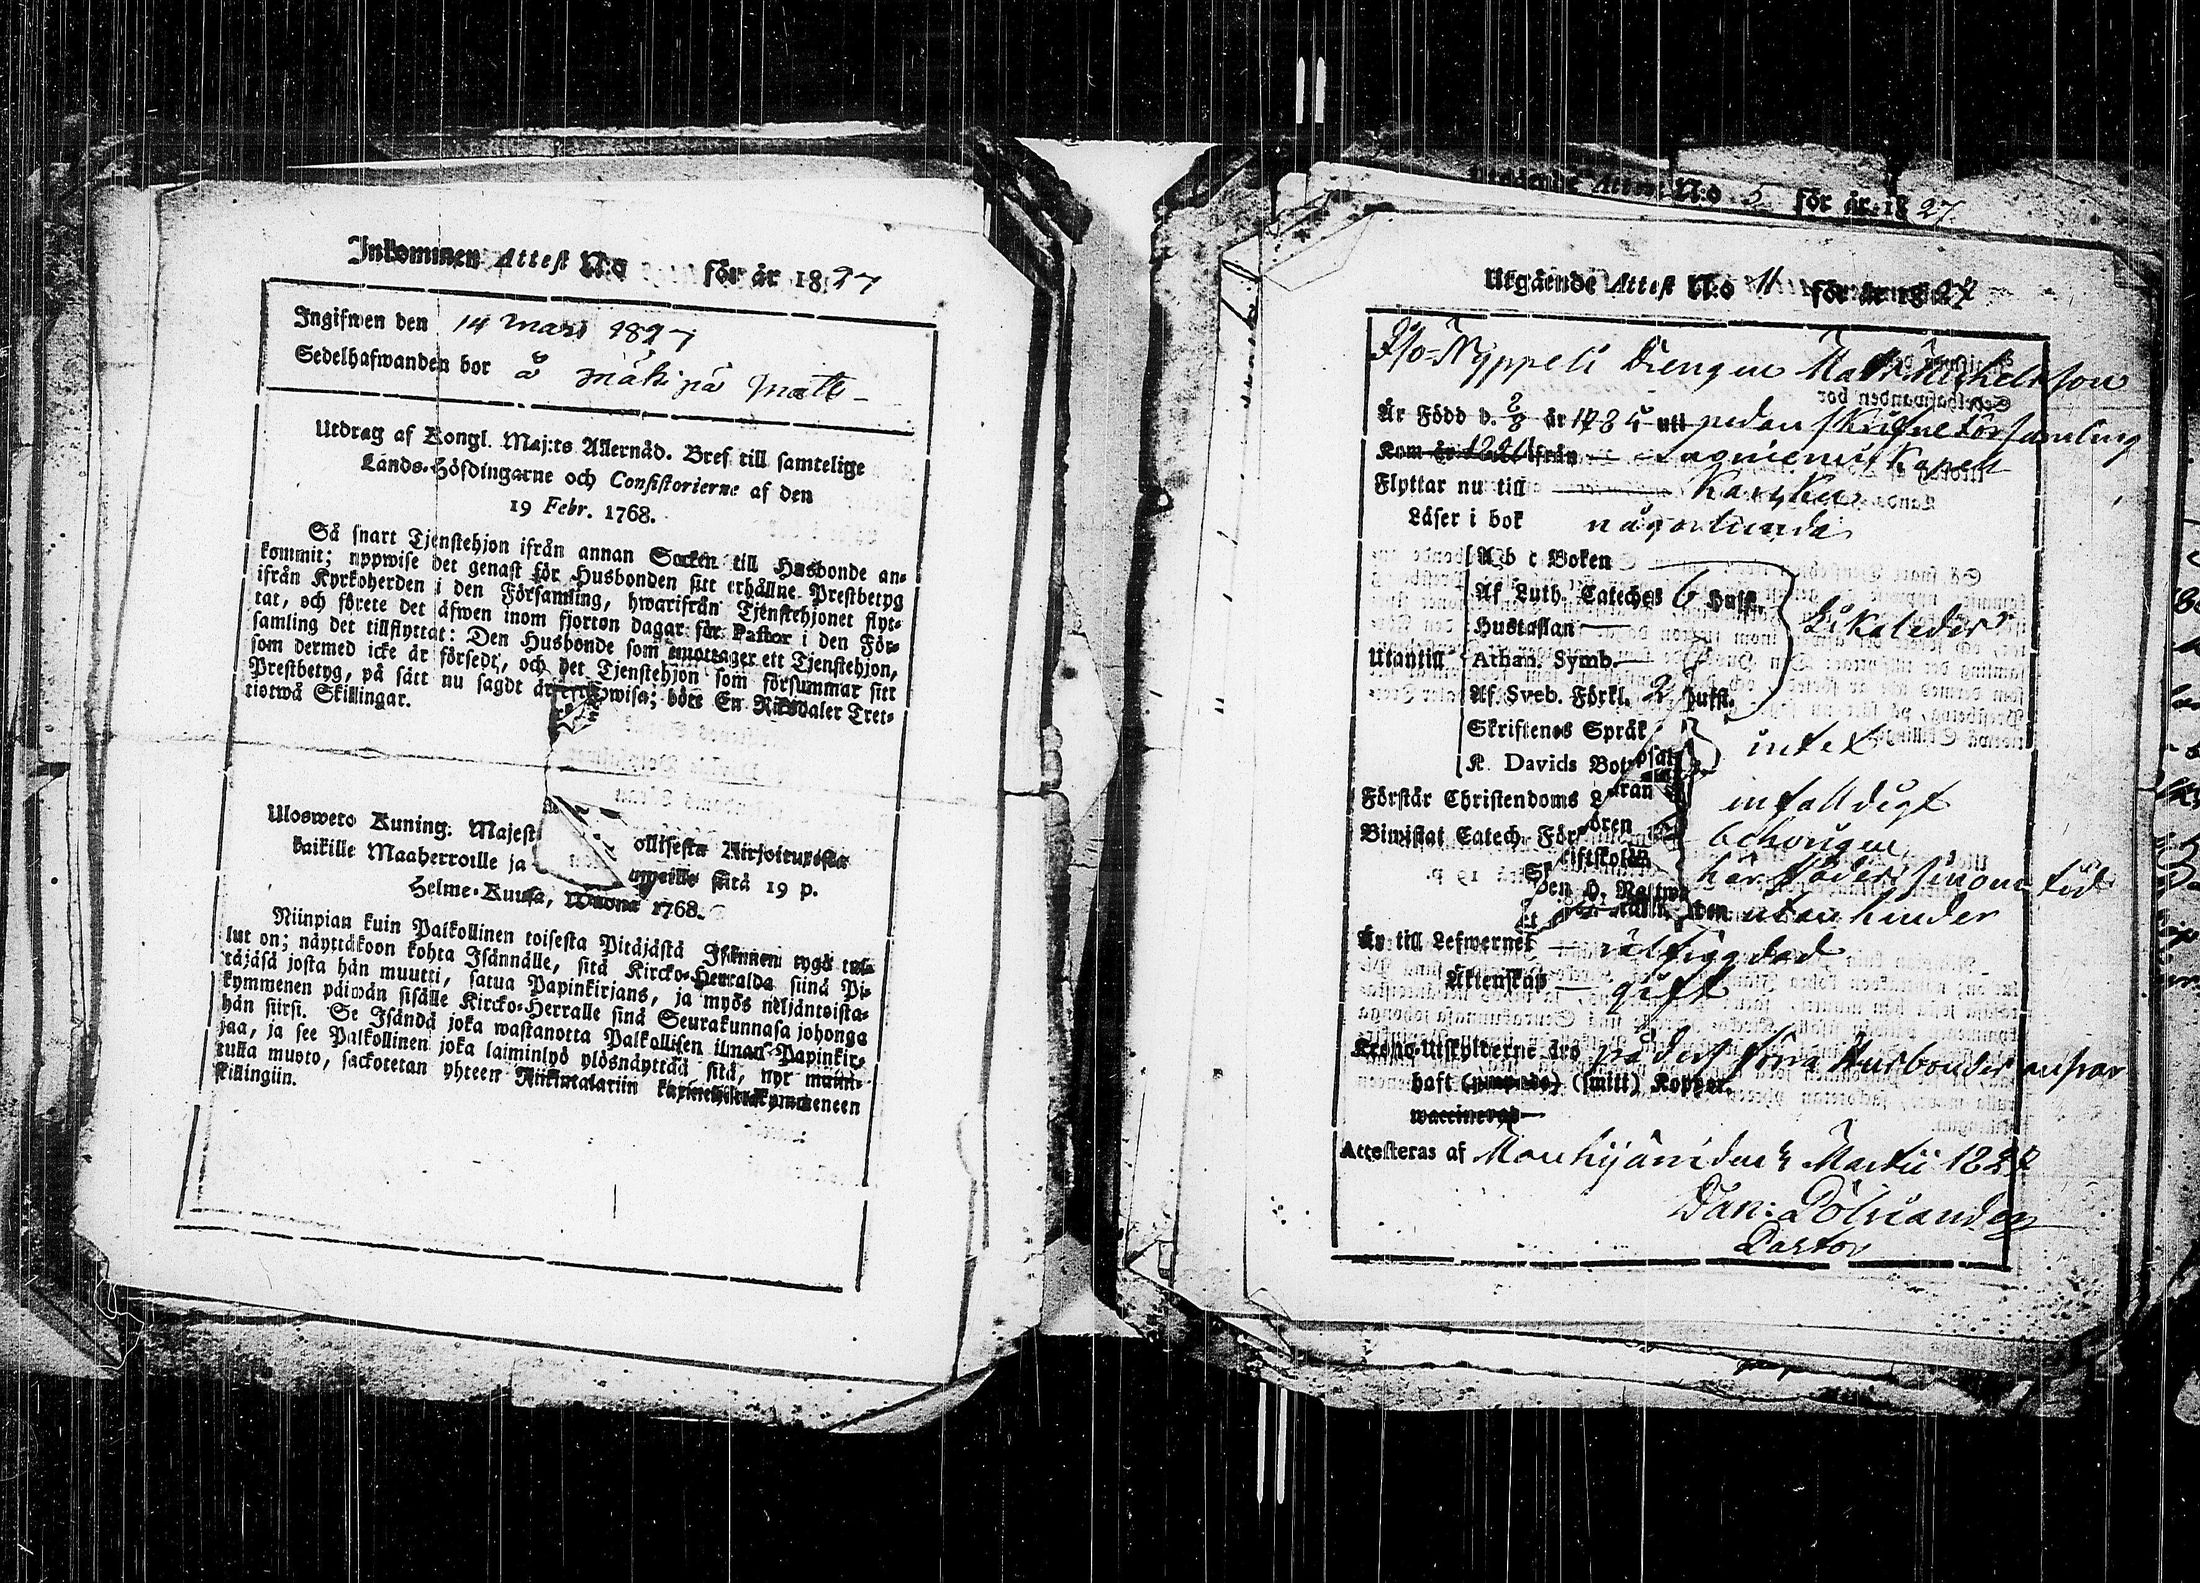 Inkommen Attest N:o för år 1827
Ingifwen den 14 Mars 1827
Sedelhafwanden bor å Mäkipä Matts
Utdrag af Kongl. Maj:ts Allernåd. Bref till samtelige
Lands-Höfdingarne och Consistorierne af den
19 Febr. 1768.
Så snart Tjenstehjon ifrån annan Socken till Husbonde an-
kommit; uppwise det genast för Husbonden sitt erhållne Prestbetyg
ifrån Kyrkoherden i den Församling, hwarifrån Tjenstehjonet flyt-
tat, och förete det äfwen inom fjorton dagar för Pastor i den För-
samling det tillflyttat: Den Husbonde som emottager ett Tjenstehjon,
som dermed icke är försedt, och det Tjenstehjon som försummar sitt
Prestbetyg, på sätt nu sagdt är wisa; böte En Riksdaler Tret-
tiotwå Skillingar.
Ulosweto Kuning. Majest ollisesta Kirjoituxesta
kaikille Maaherroille ja umeille siitä 19 p.
Helme-Kuusa, Wuona 1768.
Niinpian kuin Palkollinen toisesta Pitäjästä Isännen tygö tul-
lut on; näyttäkoon kohta Isännälle, sitä Kircko-Herralda siinä Pi-
täjäsä josta hän muutti, saatua Papinkirjans, ja myös neljäntoista-
kymmenen päiwän sisälle Kircko-Herralle sinä Seurakunnasa johonga
hän siirsi. Se Isändä joka wastanotta Palkollisen ilman Papinkir-
jaa, ja see Palkollinen joka laiminlyö ylösnäyttää sitä, nyt maini-
tulla muoto, sackotetan yhteen Riikintalariin kaxineljättäkymmeneen
skillingiin.
Utgående Attest N:o 5 för år 1827.
Utgående Attest N:o 11 för år 1827
Iso-Nyppeli Drengen Matts Michelsson
Är Född d. 2/8 år 1785 uti
Kom år ifrån Kapell
Flyttar nu till Karsku
Läser i bok någorlunda
Ab c Boken
Af Luth. Cateches 6 Hufst.
Hustaflan likaledes
Utantill Athan. Symb.
Af Sveb. Förkl. 2 Hufst.
Skriftenes Språk
K. Davids Bot psal intet
Förstår Christendoms L äran enfalldigt
Biwistat Catech. För ören behörigen
Skriftskolan här städes sinom tid
en H. Nattwa
utan hinder
Är till Lefwernet
Äktenskap gift
Krono-Utskylderne äro på dess förra Husbondes answar
haft (smitt) Koppor.
waccinerad
Attesteras af Mouhijärwi den 4 Martii 1827
Dan: Pölviander
Pastor